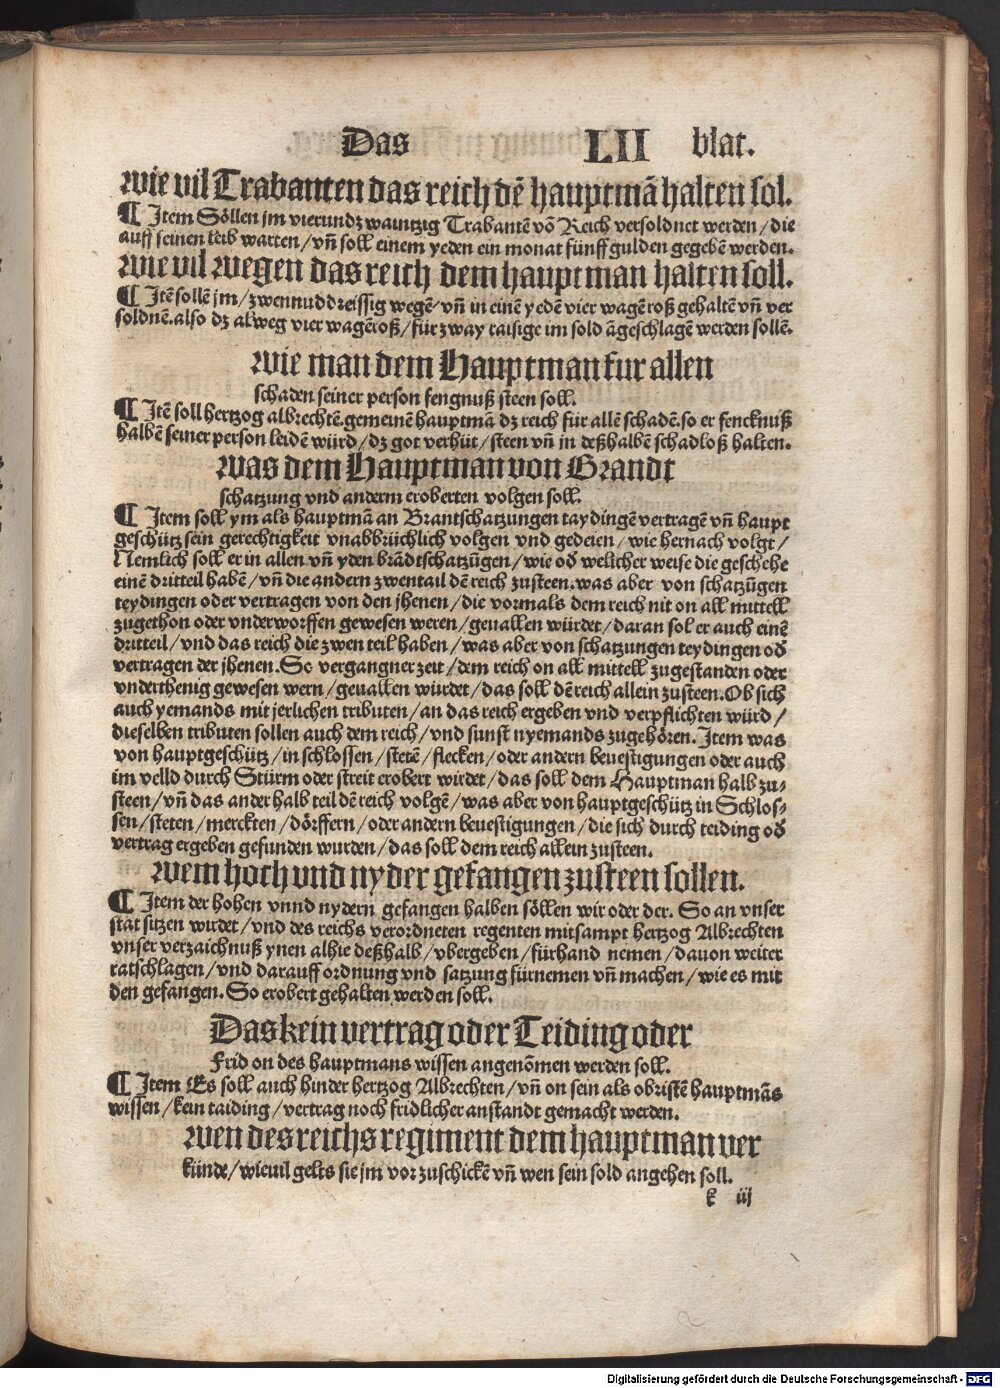 Das LII blat.
wie vil Trabanten das reich dē hauptmā halten sol.
¶ Item Söllen jm vierundzwaintzig Trabantē vō Reich versoldnet werden / die
auff seinen leib warten / vn̄ soll einem yeden ein monat fünff gulden gegebē werden.
wie vil wegen das reich dem hauptman halten soll.
¶ Itē sollē jm / zwennuddreissig wegē / vn̄ in einē yedē vier wagē roß gehaltē vn̄ ver
soldnē. also dz alweg vier wagēroß / für zway raisige im sold āgeschlagē werden sollē.
wie man dem Hauptman fur allen
schaden seiner person fengnuß steen soll.
¶ Itē soll hertzog albrechtē. gemeinē hauptmā dz reich für allē schadē. so er fencknuß
halbē seiner person leidē würd / dz got verhüt / steen vn̄ in deßhalbē schadloß halten.
was dem Hauptman von Brandt
schatzung vnd anderm eroberten volgen soll.
¶ Item soll ym als hauptmā an Brantschatzungen taydingē vertragē vn̄ haupt
geschütz sein gerechtigkeit vnabbrüchlich volgen vnd gedeien / wie hernach volgt /
Nemlich soll er in allen vn̄ yden brādtschatzūgen / wie od̄ welicher weise die geschehe
einē dritteil habē / vn̄ die andern zwentail dē reich zusteen. was aber von schatzūgen
teydingen oder vertragen von den jhenen / die vormals dem reich nit on all mittell
zugethon oder vnderworffen gewesen weren / geuallen würdet / daran sol er auch einē
dritteil / vnd das reich die zwen teil haben / was aber von schatzungen teydingen od̄
vertragen der jhenen. So vergangner zeit / dem reich on all mittell zugestanden oder
vnderthenig gewesen wern / geuallen würdet / das soll dē reich allein zusteen. Ob sich
auch yemands mit jerlichen tributen / an das reich ergeben vnd verpflichten würd /
dieselben tributen sollen auch dem reich / vnd sunst nyemands zugehören. Item was
von hauptgeschütz / in schlossen / stetē / flecken / oder andern beuestigungen oder auch
im velld durch Stürm oder streit erobert wirdet / das soll dem Hauptman halb zu⸗
steen / vn̄ das ander halb teil dē reich volgē / was aber von hauptgeschütz in Schlos⸗
sen / steten / merckten / dörffern / oder andern beuestigungen / die sich durch teiding od̄
vertrag ergeben gefunden wurden / das soll dem reich allein zusteen.
wem hoch vnd nyder gefangen zusteen sollen.
¶ Item der hohen vnnd nydern gefangen halben söllen wir oder der. So an vnser
stat sitzen wirdet / vnd des reichs verordneten regenten mitsampt hertzog Albrechten
vnser verzaichnuß ynen alhie deßhalb / vbergeben / fürhand nemen / dauon weiter
ratschlagen / vnd darauff ordnung vnd satzung fürnemen vn̄ machen / wie es mit
den gefangen. So erobert gehalten werden soll.
Das kein vertrag oder Teiding oder
Frid on des hauptmans wissen angenōmen werden soll.
¶ Item Es soll auch hinder hertzog Albrechten / vn̄ on sein als obristē hauptmās
wissen / kein taiding / vertrag noch fridlicher anstandt gemacht werden.
wen des reichs regiment dem hauptman ver
künde / wieuil gelts sie jm vor zuschickē vn̄ wen sein sold angehen soll.
k iij
Digitalisierung gefördert durch die Deutsche Forschungsgemeinschaft - DFG